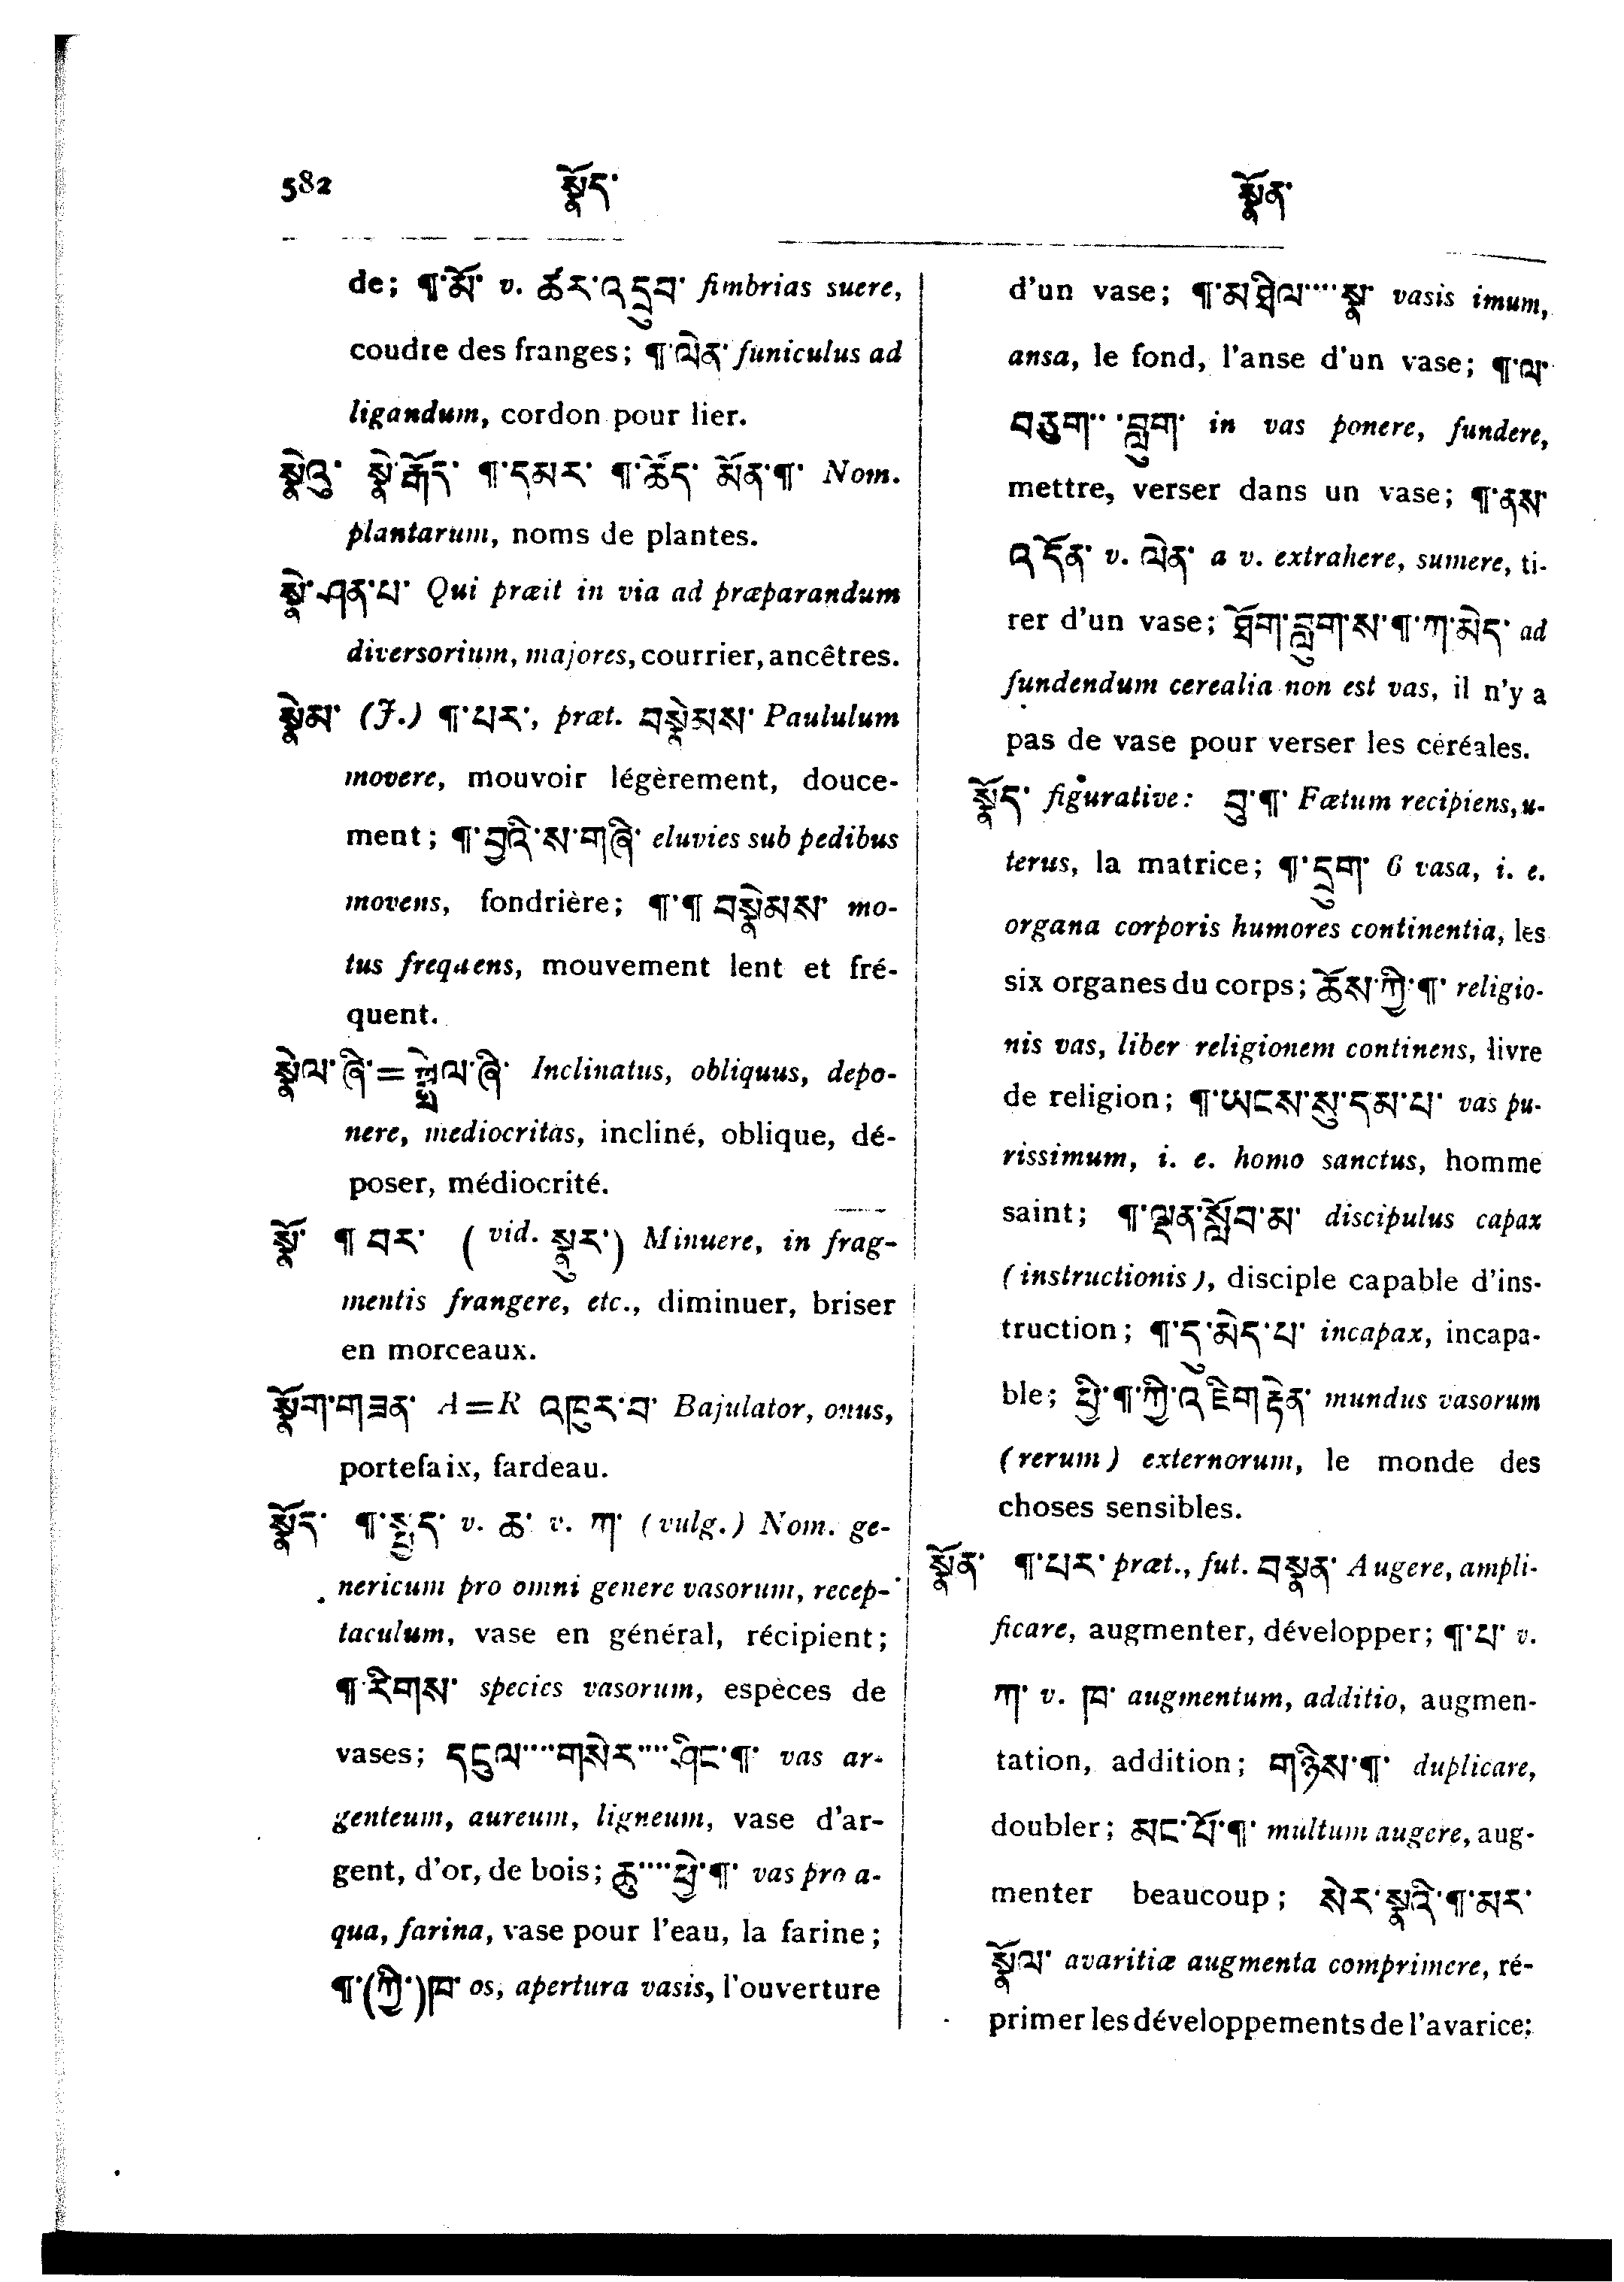 582 སྣོད་ སྣོན་
de; ¶་མོ་ v. ཚར་འདྲུབ་ fimbrias suere,
coudre des franges; ¶་ལེན་ funiculus ad
ligandum, cordon pour lier.
སྣེའུ་ སྣེ་རྒོད་ ¶་དམར་ ¶་ཚོད་ མོན་¶་ Nom.
plantarum, noms de plantes.
སྣེ་ཤན་པ་ Qui præit in via ad præparandum
diversorium, majores, courrier, ancêtres.
སྣེམ་ (J.) ¶་པར་, præt. བསྣེམས་ Paululum
movere, mouvoir légèrement, douce-
ment; ¶་བྱའི་ས་གཞི་ eluvies sub pedibus
movens, fondrière; ¶་¶ བསྣེམས་ mo-
tus frequens, mouvement lent et fré-
quent.
སྣེལ་ཞི་= Inclinatus, obliquus, depo-
nere, mediocritas, incliné, oblique, dé-
poser, médiocrité.
སྣོ་ ¶ བར་ (vid. སྣུར་) Minuere, in frag-
mentis frangere, etc., diminuer, briser
en morceaux.
སྣོག་གཟན་ A=R འཁུར་བ་ Bajulator, onus,
portefaix, fardeau.
སྣོད་ ¶་སྤྱད་ v. ཆ་ v. ཀ་ (vulg.) Nom. ge-
nericum pro omni genere vasorum, recep-
taculum, vase en général, récipient;
¶་རིགས་ species vasorum, espèces de
vases; དངུལ་···གསེར་···ཤིང་¶་ vas ar-
genteum, aureum, ligneum, vase d'ar-
gent, d'or, de bois; ཆུ་···ཕྱེ་¶་ vas pro a-
qua, farina, vase pour l'eau, la farine;
¶་(ཀྱི་)ཁ་ os, apertura vasis, l'ouverture
d'un vase; ¶་མཐིལ་···སྣ་ vasis imum,
ansa, le fond, l'anse d'un vase; ¶་ལ་
བཅུག་··བླུག་ in vas ponere, fundere,
mettre, verser dans un vase; ¶་ནས་
འདོན་ v. ལེན་ a v. extrahere, sumere, ti-
rer d'un vase; ཐོག་བླུག་ས་¶་ཀ་མེད་ ad
fundendum cerealia non est vas, il n'y a
pas de vase pour verser les céréales.
སྣོད་ figurative: བུ་¶་ Fætum recipiens, u-
terus, la matrice; ¶་དྲུག་ 6 vasa, i. e.
organa corporis humores continentia, les
six organes du corps; ཆོས་ཀྱི་¶་ religio-
nis vas, liber religionem continens, livre
de religion; ¶་ཡངས་སུ་དམ་པ་ vas pu-
rissimum, i. e. homo sanctus, homme
saint; ¶་ལྡན་སློབ་མ་ discipulus capax
(instructionis), disciple capable d'ins-
truction; ¶་དུ་མེད་པ་ incapax, incapa-
ble; ཕྱི་¶་ཀྱི་འཇིག་རྟེན་ mundus vasorum
(rerum) externorum, le monde des
choses sensibles.
སྣོན་ ¶་པར་ præt., fut. བསྣན་ Augere, ampli-
ficare, augmenter, développer; ¶་པ་ v.
ཀ་ v. ཁ་ augmentum, additio, augmen-
tation, addition; གཉིས་¶་ duplicare,
doubler; མང་པོ་¶་ multum augere, aug-
menter beaucoup; སེར་སྣའི་¶་མར་
སྣོལ་ avaritiæ augmenta comprimere, ré-
primer les développements de l'avarice;